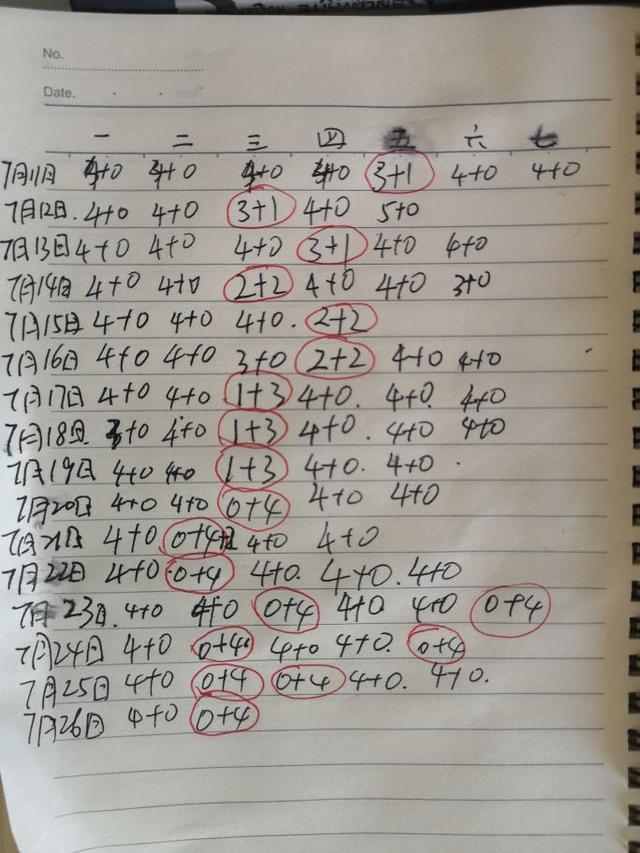 No.
Date.
一 二 三 四 五 六 七
7月11日 4+0 4+0 4+0 4+0 3+1 4+0 4+0
7月12日. 4+0 4+0 3+1 4+0 5+0
7月13日 4+0 4+0 4+0 3+1 4+0 4+0
7月14日 4+0 4+0 2+2 4+0 4+0 3+0
7月15日 4+0 4+0 4+0. 2+2
7月16日 4+0 4+0 3+0 2+2 4+0 4+0
7月17日 4+0 4+0 1+3 4+0. 4+0. 4+0
7月18日. 3+0 4+0 1+3 4+0. 4+0 4+0
7月19日 4+0 4+0 1+3 4+0. 4+0.
7月20日 4+0 4+0 0+4 4+0 4+0
7月21日 4+0 0+4 4+0 4+0
7月22日 4+0 0+4 4+0. 4+0. 4+0
7月23日. 4+0 4+0 0+4 4+0 4+0 0+4
7月24日 4+0 0+4 4+0 4+0. 0+4
7月25日 4+0 0+4 0+4 4+0. 4+0.
7月26日 4+0 0+4